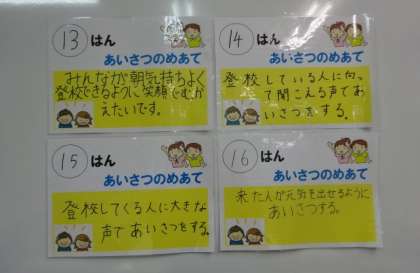 13 はん
あいさつのめあて
みんなが朝気持ちよく
登校できるように笑顔でむか
えたいです。
14 はん
あいさつのめあて
登校している人に向っ
て聞こえる声であ
いさつをする。
15 はん
あいさつのめあて
登校してくる人に大きな
声であいさつをする。
16 はん
あいさつのめあて
来た人が元気を出せるように
あいさつする。